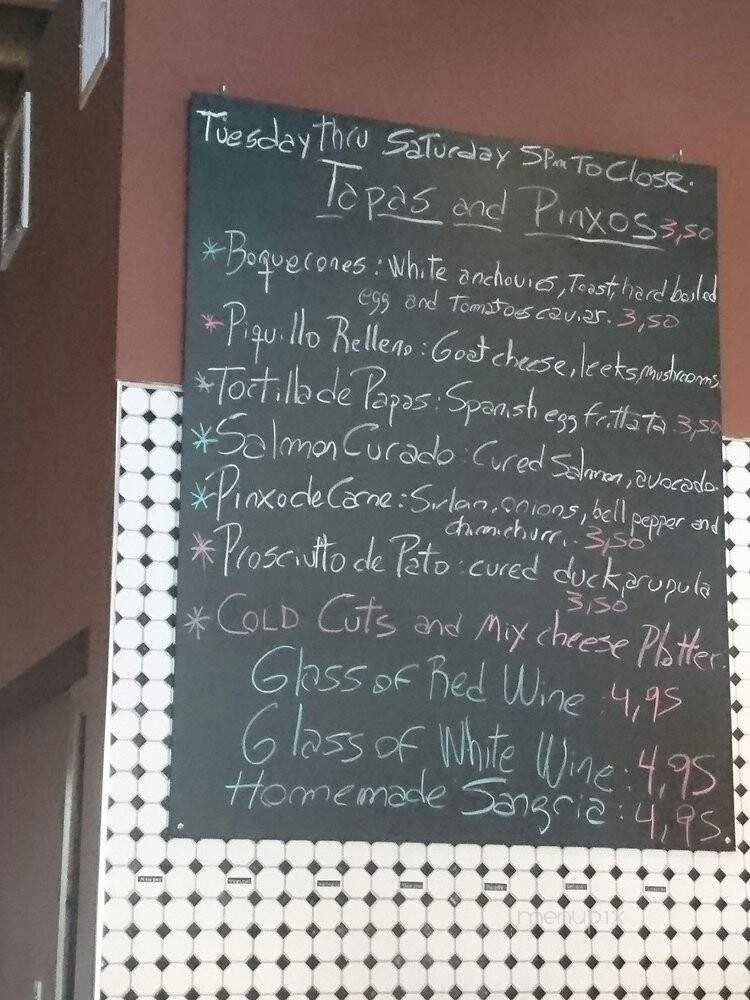 Tuesday thru Saturday 5pm To Close.
Tapas and Pinxos 3,50
*Boquerones: White anchovies, Toast, hard boiled
egg and Tomatoes caviar. 3,50
*Piquillo Relleno: Goat cheese, leeks, mushrooms.
*Tortilla de Papas: Spanish egg frittata. 3,50
*Salmon Curado: Cured Salmon, avocado.
*Pinxo de Carne: Sirloin, onions, bell pepper and
chimichurri. 3,50
*Prosciutto de Pato: cured duck, arugula
3,50
*COLD Cuts and Mix cheese Platter.
Glass of Red Wine: 4,95
Glass of White Wine: 4,95
Homemade Sangria: 4,95.
menupix